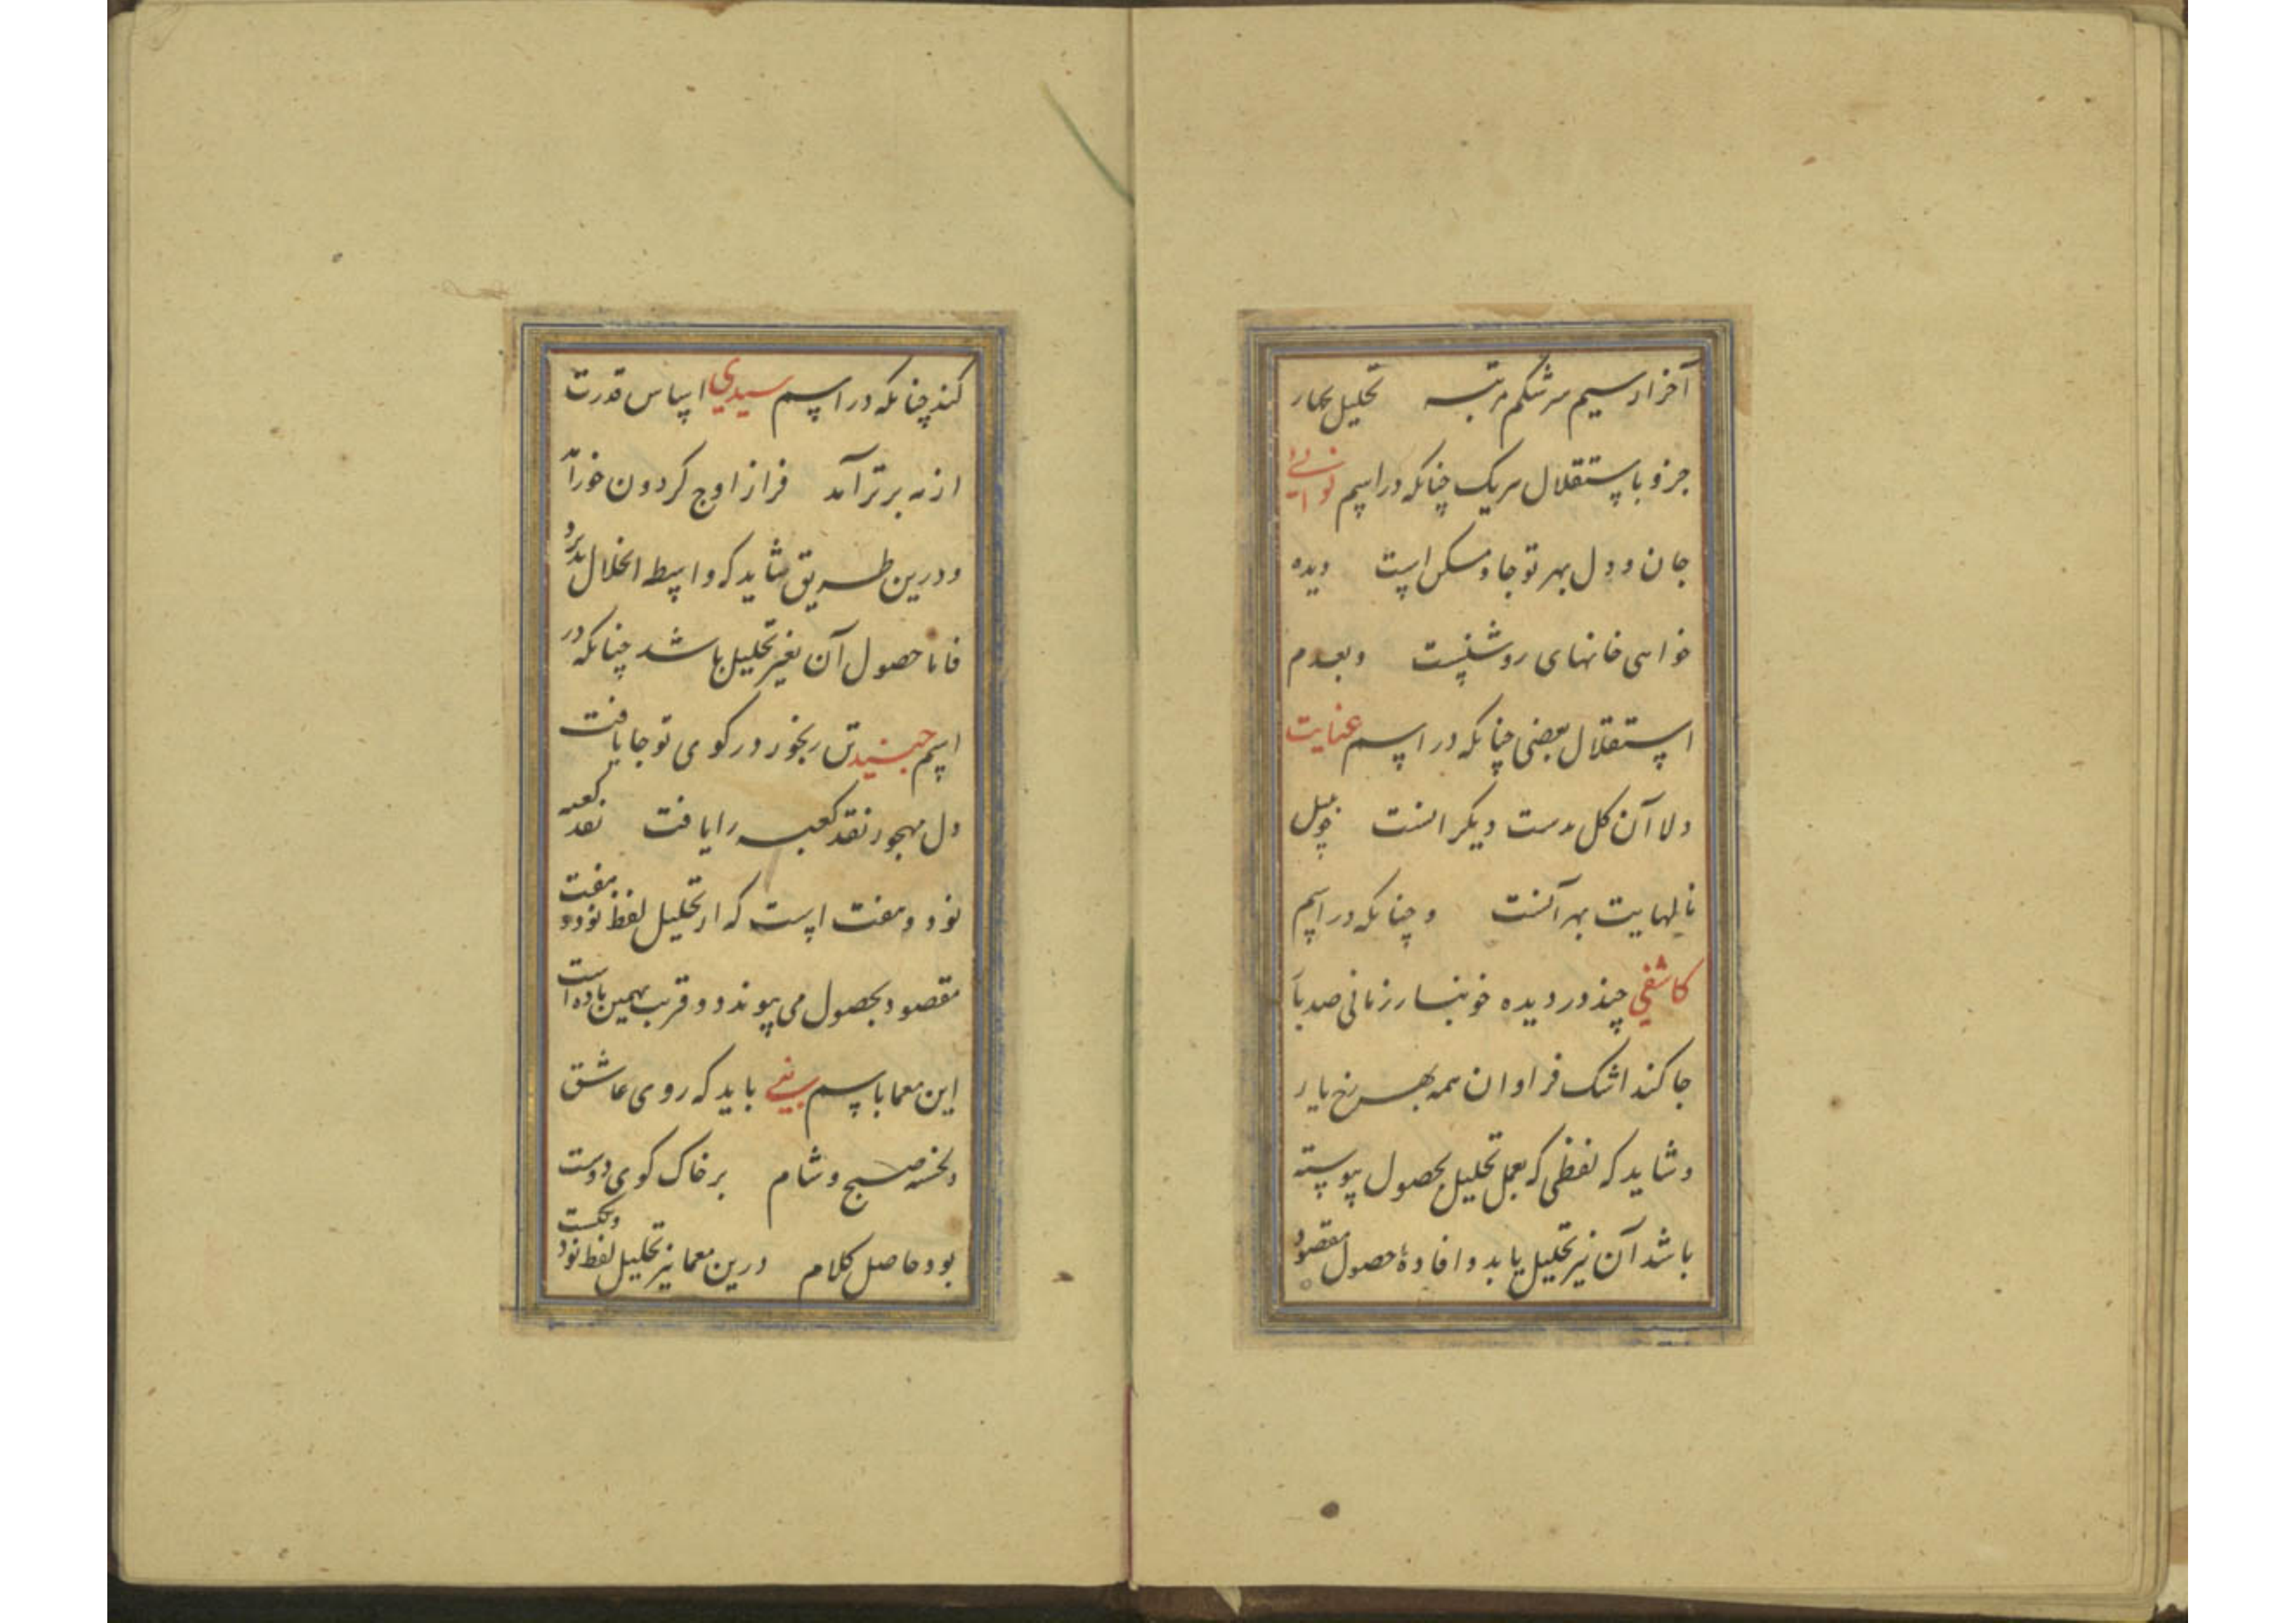 آخر از سیم سرشکم مرتبه تحلیل بچهار
جزو باستقلال هر یک چنانکه در اسم نوائی
جان و دل بهر تو جا و مسکن است دیده
خواهی خانهای روشنست و بعدم
استقلال بعضی چنانکه در اسم عنایت
دلا آن گل بدست دیگر انست چو بلبل
نالهایت بهر آنست و چنانکه در اسم
کاشفی چند در دیده خونبار زمانی صد بار
جا کند اشک فراوان همه بهر رخ یار
و شاید که لفظی که بعمل تحلیل بحصول پیوسته
باشد آن نیز تحلیل یابد و افادهٔ حصول مقصود
کند چنانکه در اسم سیدی اساس قدرت
از مه برتر آمد فراز اوج گردون خور آمد
و درین طریق شاید که واسطه انحلال پذیرد
فاما حصول آن بغیر تحلیل باشد چنانکه در
اسم جنید تن رنجور در کوی تو جا یافت
دل مهجور نقد کعبه را یافت نقد کعبه
نود و هفت است که از تحلیل لفظ نود و هفت
مقصود بحصول می پیوندد و قریب بهمین باده است
این معما باسم سیفی باید که روی عاشق
دلخسته صبح و شام بر خاک کوی دوست
بود حاصل کلام درین معما نیز تحلیل لفظ نود